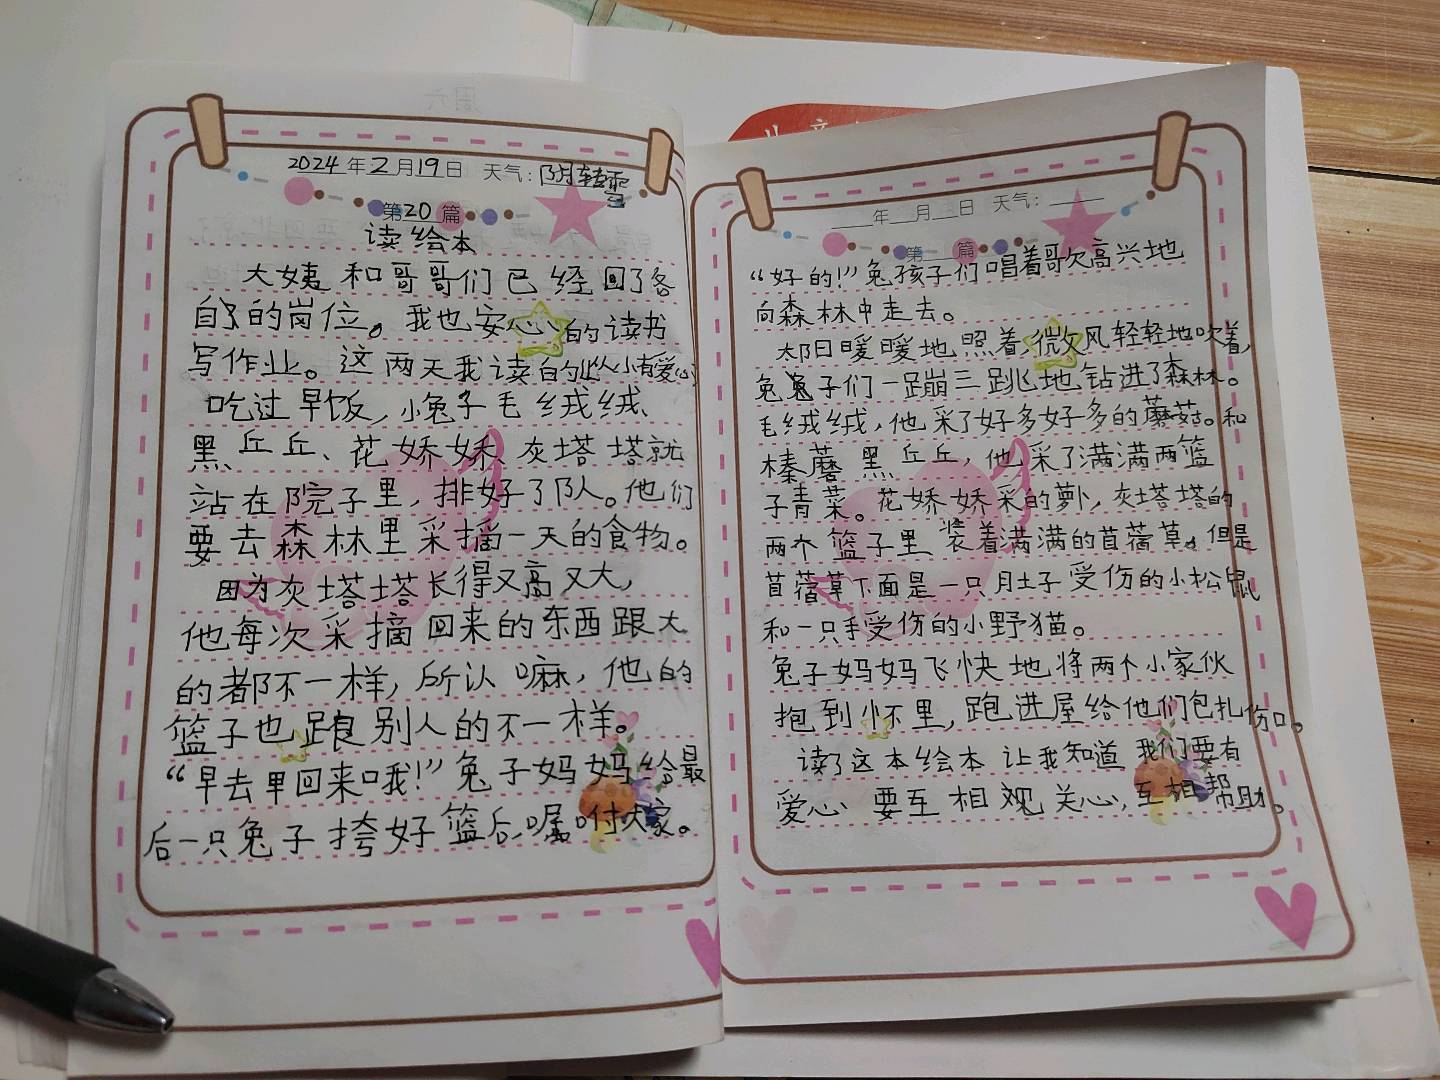 2024年2月19日 天气:阴转雪
第20篇
读绘本
大姨和哥哥们已经回了各
自的岗位。我也安心的读书
写作业。这两天我读的是从小有爱心
吃过早饭,小兔子毛绒绒、
黑丘丘、花娇娇、灰塔塔就
站在院子里,排好了队。他们
要去森林里采摘一天的食物。
因为灰塔塔长得又高又大,
他每次采摘回来的东西跟大
的都不一样,所认嘛,他的
篮子也跟别人的不一样。
“早去早回来哦!”兔子妈妈给最
后一只兔子挎好篮后,嘱咐大家。
年 月 日 天气:
第 篇
“好的!”兔孩子们唱着歌欢高兴地
向森林中走去。
太阳日暖暖地照着,微风轻轻地吹着,
兔子们一蹦三跳地钻进了森林。
毛绒绒,他采了好多好多的蘑菇。和
榛蘑黑丘丘,他采了满满两篮
子青菜。花娇娇采的萝卜,灰塔塔的
两个篮子里装着满满的苜蓿草。但是
苜蓿草下面是一只肚子受伤的小松鼠
和一只手受伤的小野猫。
兔子妈妈飞快地将两个小家伙
抱到怀里,跑进屋给他们包扎伤口。
读了这本绘本让我知道我们要有
爱心要互相观关心,互相帮助。